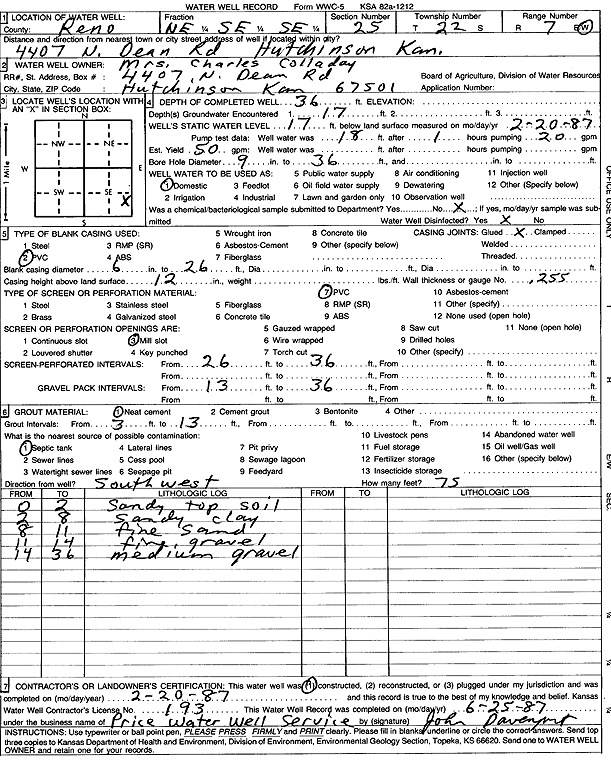 WATER WELL RECORD Form WWC-5 KSA 82a-1212
1 LOCATION OF WATER WELL: Fraction Section Number Township Number Range Number
County: Reno NE ¼ SE ¼ SE ¼ 25 T 22 S R 7 E/W
Distance and direction from nearest town or city street address of well if located within city?
4407 N. Dean Rd Hutchinson Kan.
2 WATER WELL OWNER: Mrs. Charles Colladay
RR#, St. Address, Box # : 4407 N. Dean Rd Board of Agriculture, Division of Water Resources
City, State, ZIP Code : Hutchinson Kan 67501 Application Number:
3 LOCATE WELL'S LOCATION WITH AN "X" IN SECTION BOX:
N
NW NE
W E
SW SE
X
S
1 Mile
4 DEPTH OF COMPLETED WELL 36 ft. ELEVATION:
Depth(s) Groundwater Encountered 1. 17 ft. 2. ft. 3. ft.
WELL'S STATIC WATER LEVEL 17 ft. below land surface measured on mo/day/yr 2-20-87
Pump test data: Well water was 18 ft. after 1 hours pumping 20 gpm
Est. Yield 50 gpm: Well water was ft. after hours pumping gpm
Bore Hole Diameter 9 in. to 36 ft., and in. to ft.
WELL WATER TO BE USED AS: 5 Public water supply 8 Air conditioning 11 Injection well
1 Domestic 3 Feedlot 6 Oil field water supply 9 Dewatering 12 Other (Specify below)
2 Irrigation 4 Industrial 7 Lawn and garden only 10 Observation well
Was a chemical/bacteriological sample submitted to Department? Yes No X; If yes, mo/day/yr sample was submitted
Water Well Disinfected? Yes X No
5 TYPE OF BLANK CASING USED: 5 Wrought iron 8 Concrete tile CASING JOINTS: Glued X Clamped
1 Steel 3 RMP (SR) 6 Asbestos-Cement 9 Other (specify below) Welded
2 PVC 4 ABS 7 Fiberglass Threaded
Blank casing diameter 6 in. to 26 ft., Dia in. to ft., Dia in. to ft.
Casing height above land surface 12 in., weight lbs./ft. Wall thickness or gauge No. .255
TYPE OF SCREEN OR PERFORATION MATERIAL: 7 PVC 10 Asbestos-cement
1 Steel 3 Stainless steel 5 Fiberglass 8 RMP (SR) 11 Other (specify)
2 Brass 4 Galvanized steel 6 Concrete tile 9 ABS 12 None used (open hole)
SCREEN OR PERFORATION OPENINGS ARE: 5 Gauzed wrapped 8 Saw cut 11 None (open hole)
1 Continuous slot 3 Mill slot 6 Wire wrapped 9 Drilled holes
2 Louvered shutter 4 Key punched 7 Torch cut 10 Other (specify)
SCREEN-PERFORATED INTERVALS: From 26 ft. to 36 ft., From ft. to ft.
From ft. to ft., From ft. to ft.
GRAVEL PACK INTERVALS: From 13 ft. to 36 ft., From ft. to ft.
From ft. to ft., From ft. to ft.
6 GROUT MATERIAL: 1 Neat cement 2 Cement grout 3 Bentonite 4 Other
Grout Intervals: From 3 ft. to 13 ft., From ft. to ft., From ft. to ft.
What is the nearest source of possible contamination: 10 Livestock pens 14 Abandoned water well
1 Septic tank 4 Lateral lines 7 Pit privy 11 Fuel storage 15 Oil well/Gas well
2 Sewer lines 5 Cess pool 8 Sewage lagoon 12 Fertilizer storage 16 Other (specify below)
3 Watertight sewer lines 6 Seepage pit 9 Feedyard 13 Insecticide storage
Direction from well? Southwest How many feet? 75
FROM TO LITHOLOGIC LOG FROM TO LITHOLOGIC LOG
0 2 Sandy top soil
2 8 Sandy clay
8 11 fine sand
11 14 fine gravel
14 36 medium gravel
7 CONTRACTOR'S OR LANDOWNER'S CERTIFICATION: This water well was (1) constructed, (2) reconstructed, or (3) plugged under my jurisdiction and was
completed on (mo/day/year) 2-20-87 and this record is true to the best of my knowledge and belief. Kansas
Water Well Contractor's License No. 193 This Water Well Record was completed on (mo/day/yr) 6-25-87
under the business name of Price Water Well Service by (signature) John Davenport
INSTRUCTIONS: Use typewriter or ball point pen, PLEASE PRESS FIRMLY and PRINT clearly. Please fill in blanks, underline or circle the correct answers. Send top
three copies to Kansas Department of Health and Environment, Division of Environment, Environmental Geology Section, Topeka, KS 66620. Send one to WATER WELL
OWNER and retain one for your records.
OFFICE USE ONLY
T
R
E/W
SEC.